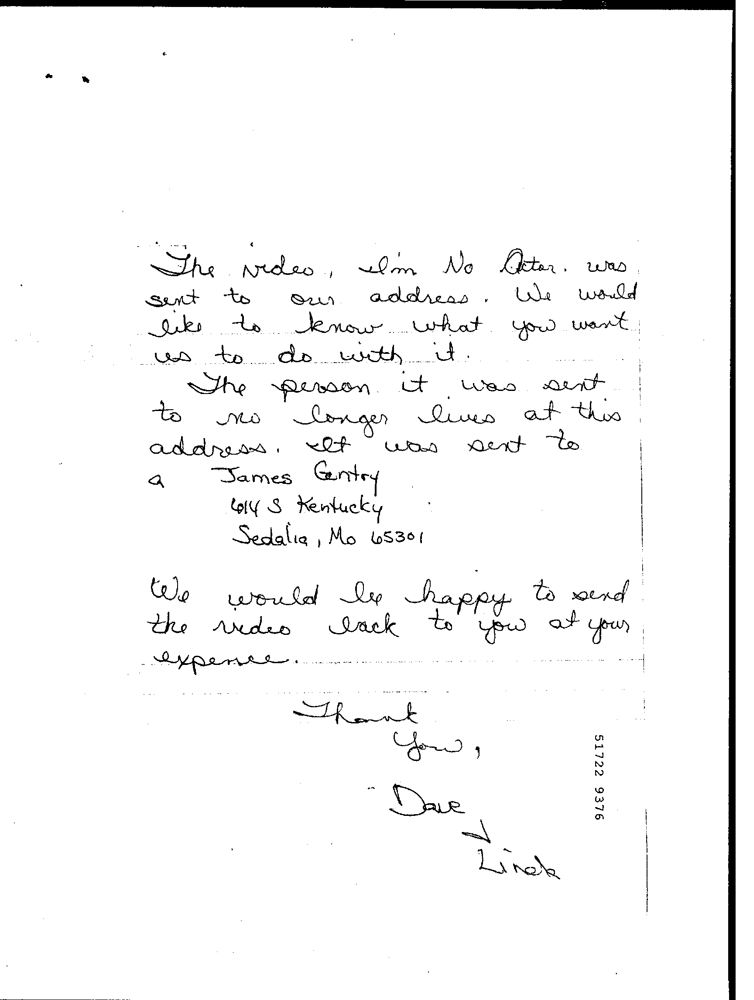 The video, I'm No Actor. was
sent to our address. We would
like to know what you want
us to do with it.
The person it was sent
to no longer lives at this
address. It was sent to
a James Gentry
614 S Kentucky
Sedalia, Mo 65301
We would be happy to send
the video back to you at your
expence.
Thank
You,
Dave
Linda
51722 9376